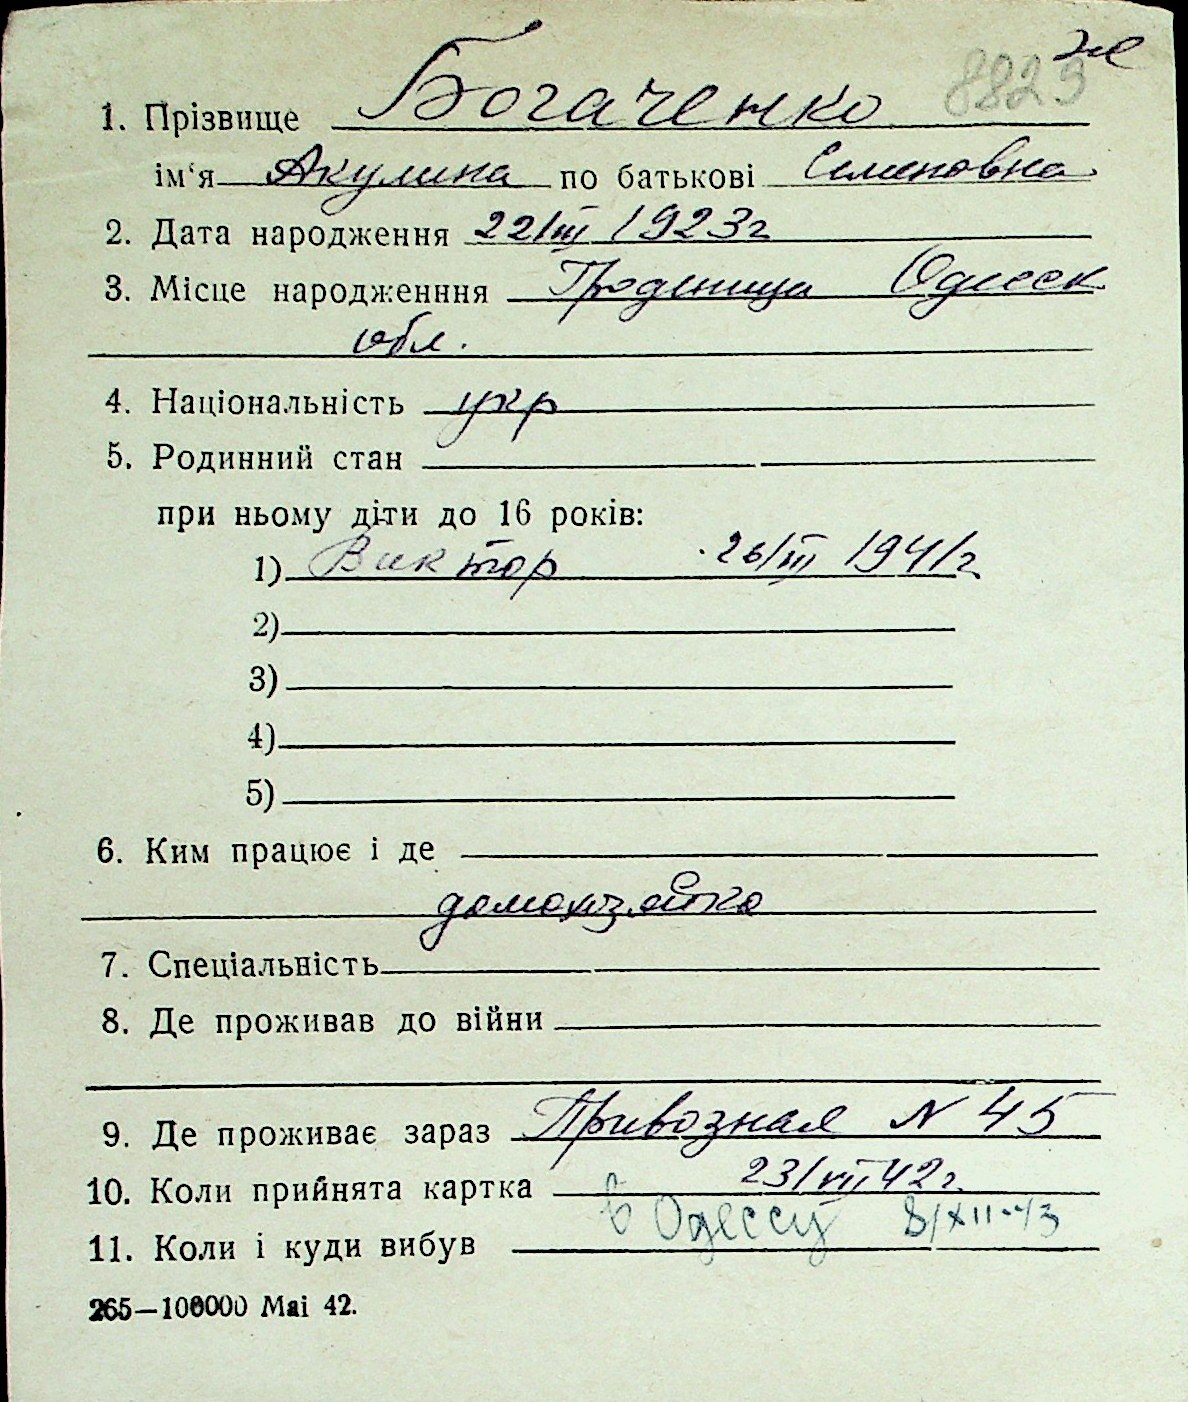 же
8829
1. Прізвище Богаченко
ім‘я Акулина по батькові Семеновна
2. Дата народження 22/III 1923г
3. Місце народженння Троденищи Одесск
обл.
4. Національність укр
5. Родинний стан
при ньому діти до 16 років:
1) Виктор 26/III 1941г
2)
3)
4)
5)
6. Ким працює і де
домохозяйка
7. Спеціальність
8. Де проживав до війни
9. Де проживає зараз Привозная N 45
10. Коли прийнята картка 23/VII 42г.
11. Коли і куди вибув в Одессу 8/XII-43
265—100000 Маі 42.